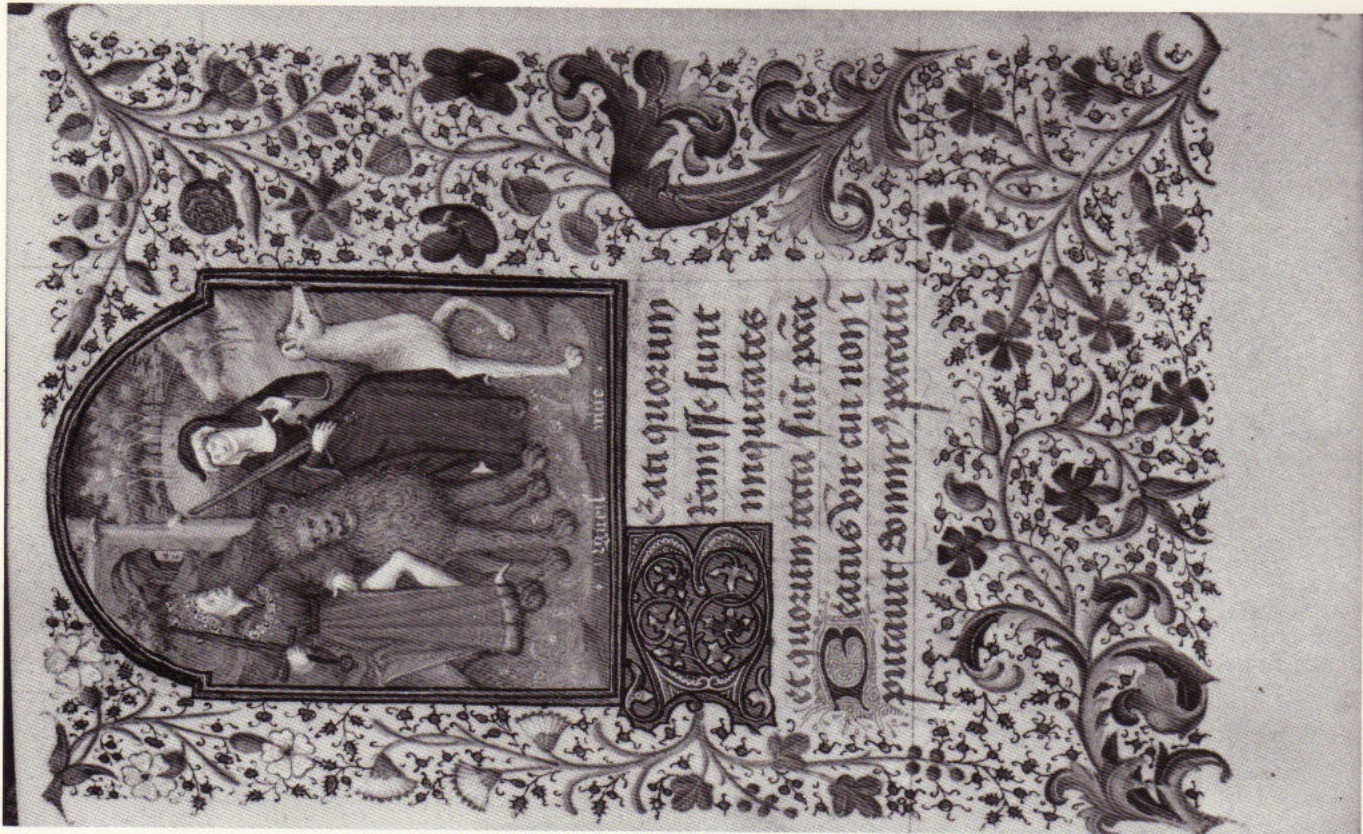 orgueil
Beati quorum
remisse sunt
iniquitates
et quorum tecta sūt pctā
Beatus vir cui non ī
putauit dominꝰ peccatū